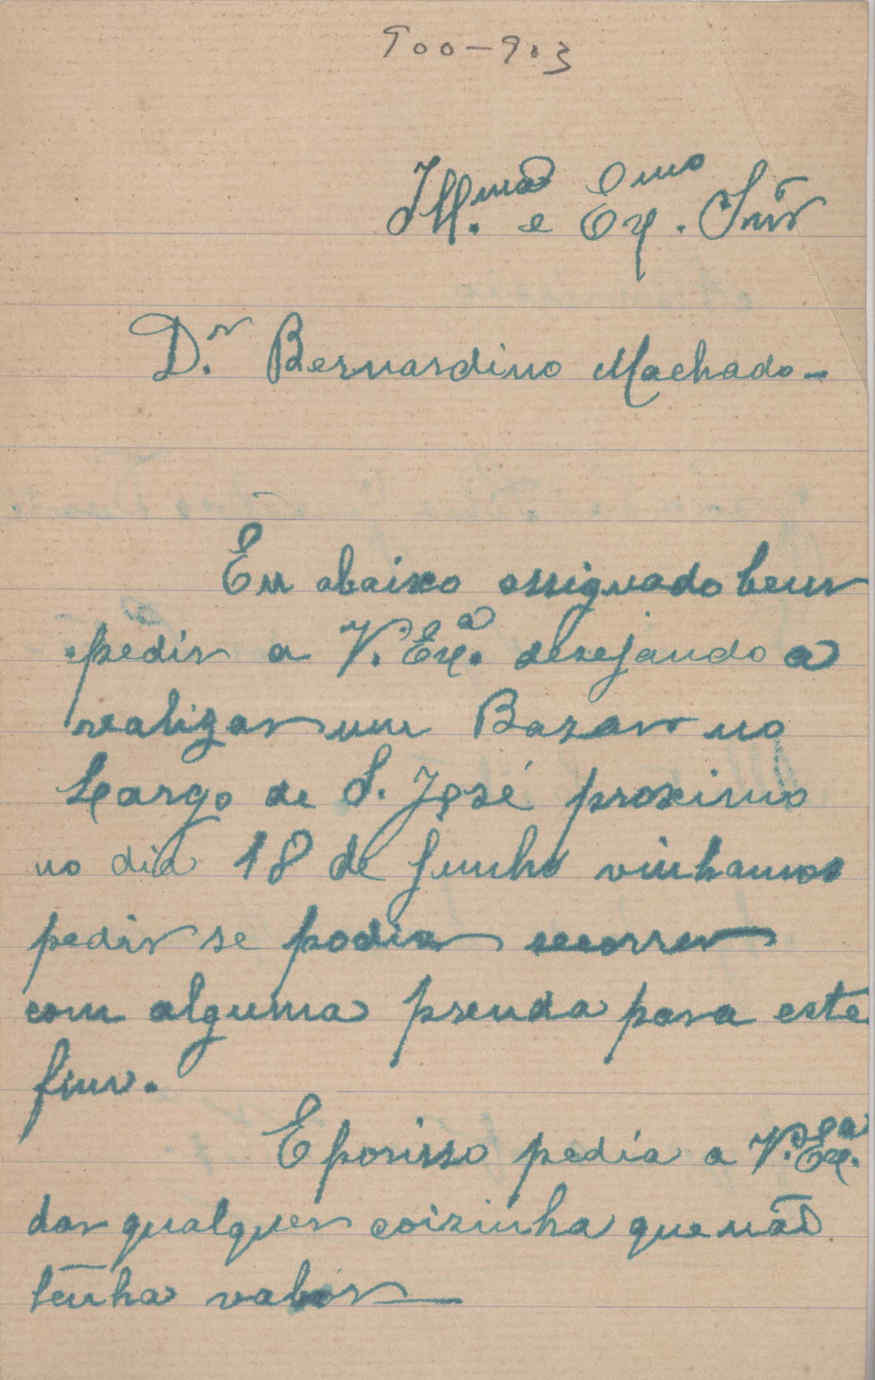 900-903
Ill.mo e Ex.mo Snr
D.r Bernardino Machado-
Eu abaixo assignado bem
pedir a V. Ex.a desejando a
realizar um Bazar no
Largo de S. José proximo
no dia 18 de Junho vinhamos
pedir se podia secorrer
com alguma prenda para este
fim.
E porisso pedia a V. Ex.a
dar qualquer coizinha que não
tenha valor